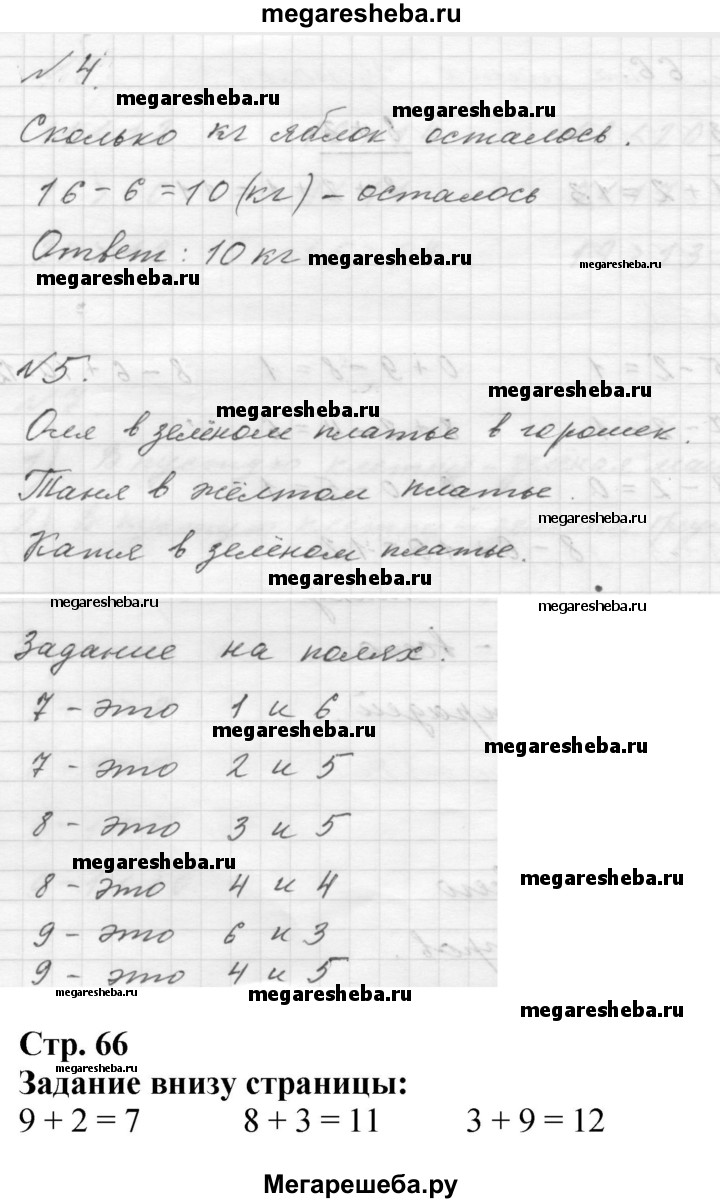 megaresheba.ru
№ 4.
megaresheba.ru
megaresheba.ru
Сколько кг яблок осталось.
16 - 6 = 10 (кг) - осталось
Ответ: 10 кг
megaresheba.ru
megaresheba.ru
megaresheba.ru
№5.
megaresheba.ru
megaresheba.ru
Оля в зелёном платье в горошек.
Таня в жёлтом платье.
megaresheba.ru
Катя в зелёном платье.
megaresheba.ru
megaresheba.ru
megaresheba.ru
Задание на полях:
7 - это 1 и 6
megaresheba.ru
megaresheba.ru
7 - это 2 и 5
8 - это 3 и 5
megaresheba.ru
megaresheba.ru
8 - это 4 и 4
9 - это 6 и 3
9 - это 4 и 5
megaresheba.ru
megaresheba.ru
megaresheba.ru
Стр. 66
megaresheba.ru
Задание внизу страницы:
9 + 2 = 7 8 + 3 = 11 3 + 9 = 12
Мегарешеба.ру